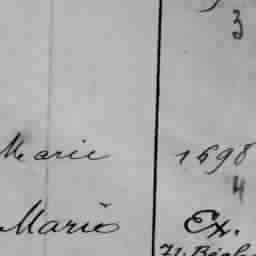 3
Marie 1698
4
Marie Ex.